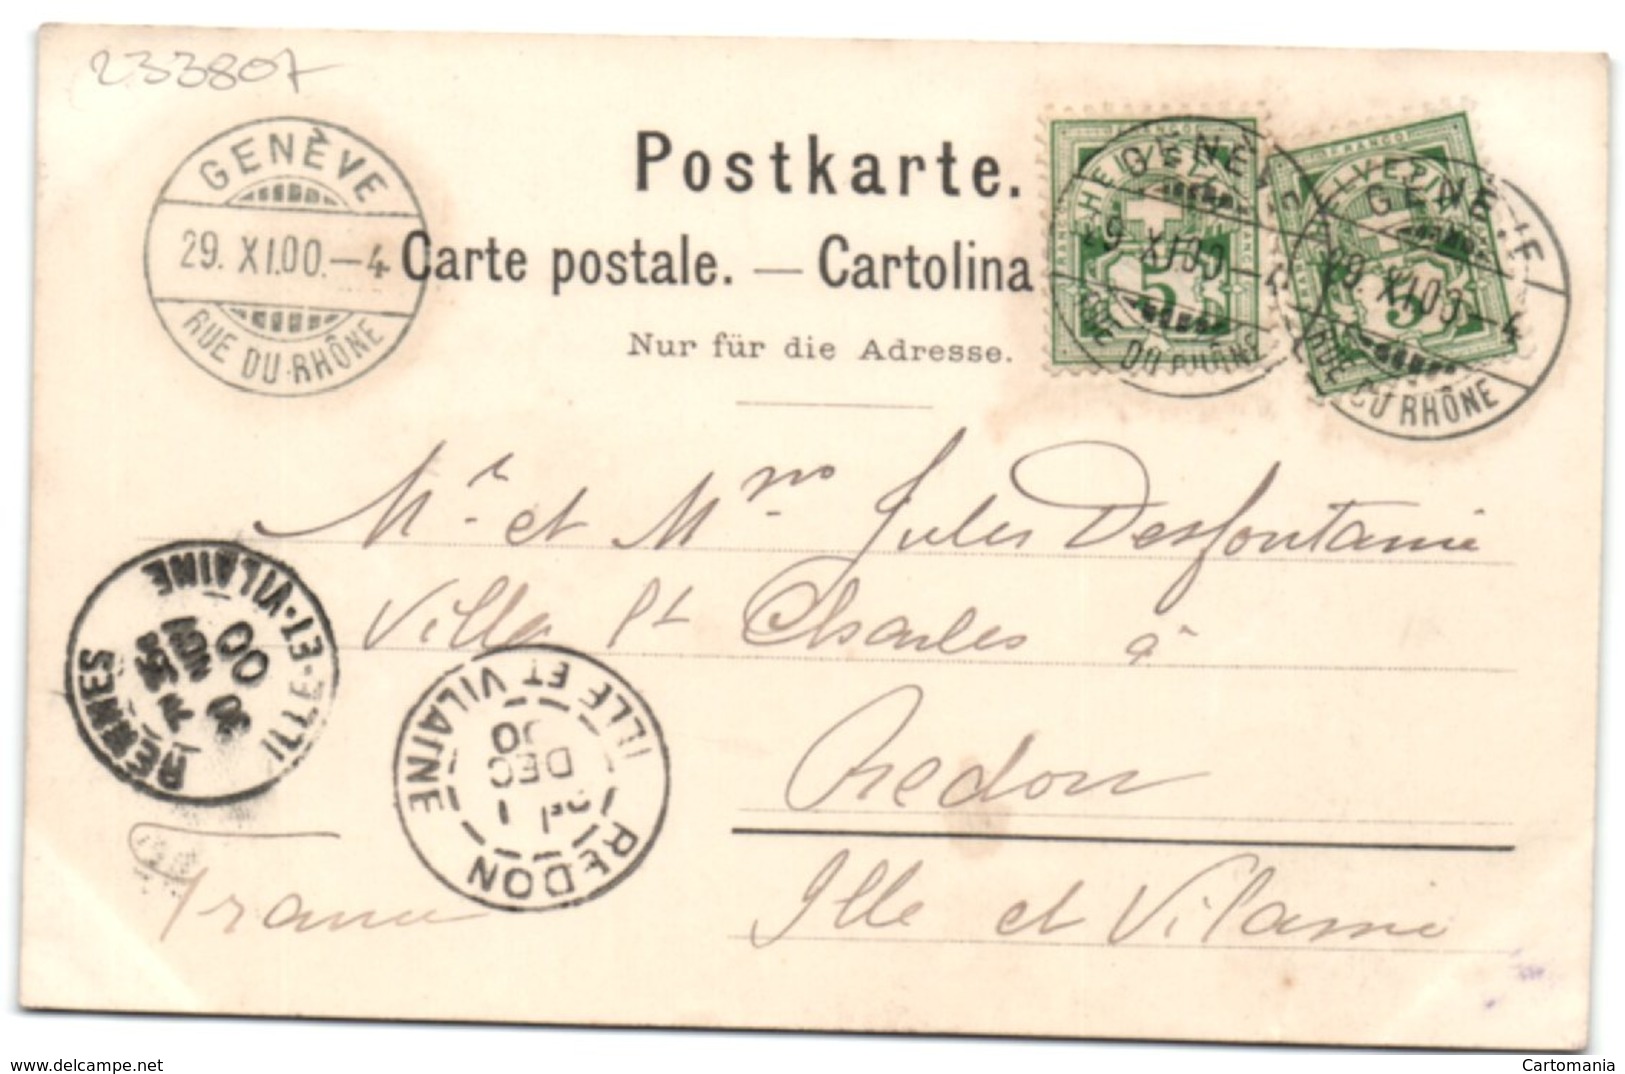 233807
GENÈVE
29. XI.00.–4
RUE DU RHÔNE
Postkarte.
Carte postale. — Cartolina
Nur für die Adresse.
HELVETIA
FRANCO
5
GENÈVE
29. XI.00.–4
RUE DU RHÔNE
HELVETIA
FRANCO
5
GENÈVE
29. XI.00.–4
RUE DU RHÔNE
Mr. et Mme Jules Desfontaine
Villa St Charles à
Redon
Ille et Vilaine
France
RENNES
30
NOV
00
ILLE-ET-VILAINE
REDON
1
DEC
00
ILLE ET VILAINE
https://www.delcampe.net
Cartomania